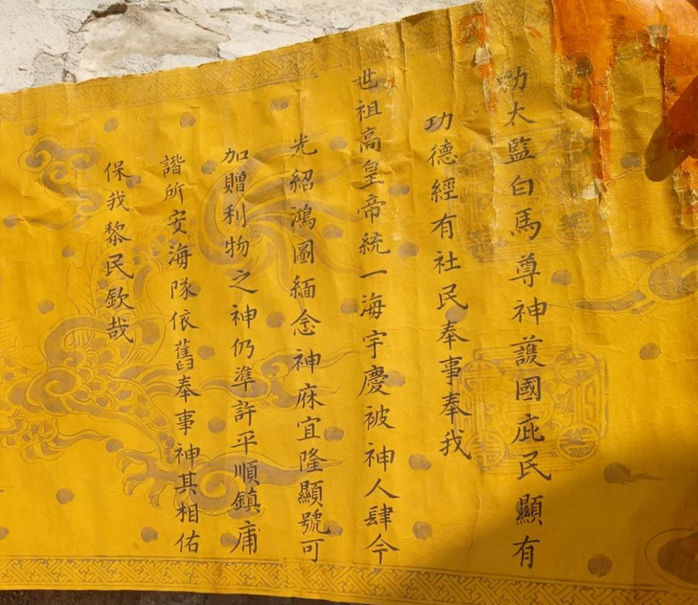 勅太監白馬尊神護國庇民顯有
功德經有社民奉事奉我
世祖高皇帝統一海宇慶被神人肆今
光紹鴻圖緬念神庥宜隆顯號可
加贈利物之神仍準許平順鎮庯
諧所安海隊依舊奉事神其相佑
保我黎民欽哉